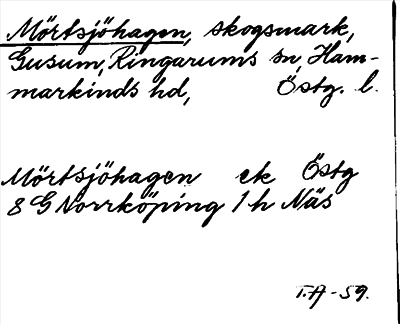 Mörtsjöhagen, skogsmark,
Gusum, Ringarums sn, Ham-
markinds hd, Östg. l.
Mörtsjöhagen ek Östg
8 G Norrköping 1 h Näs
T.A - 59.